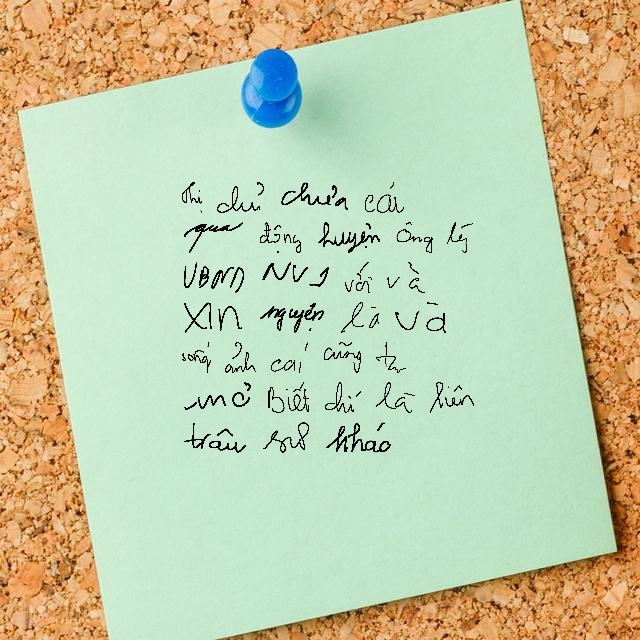 thị dử chưa cái
qua động huyện ông lý
UBND NV1 với và
XIN nguyện là và
sống ảnh cái cũng ta
mở Biết chí là hiên
trâu sử kháo